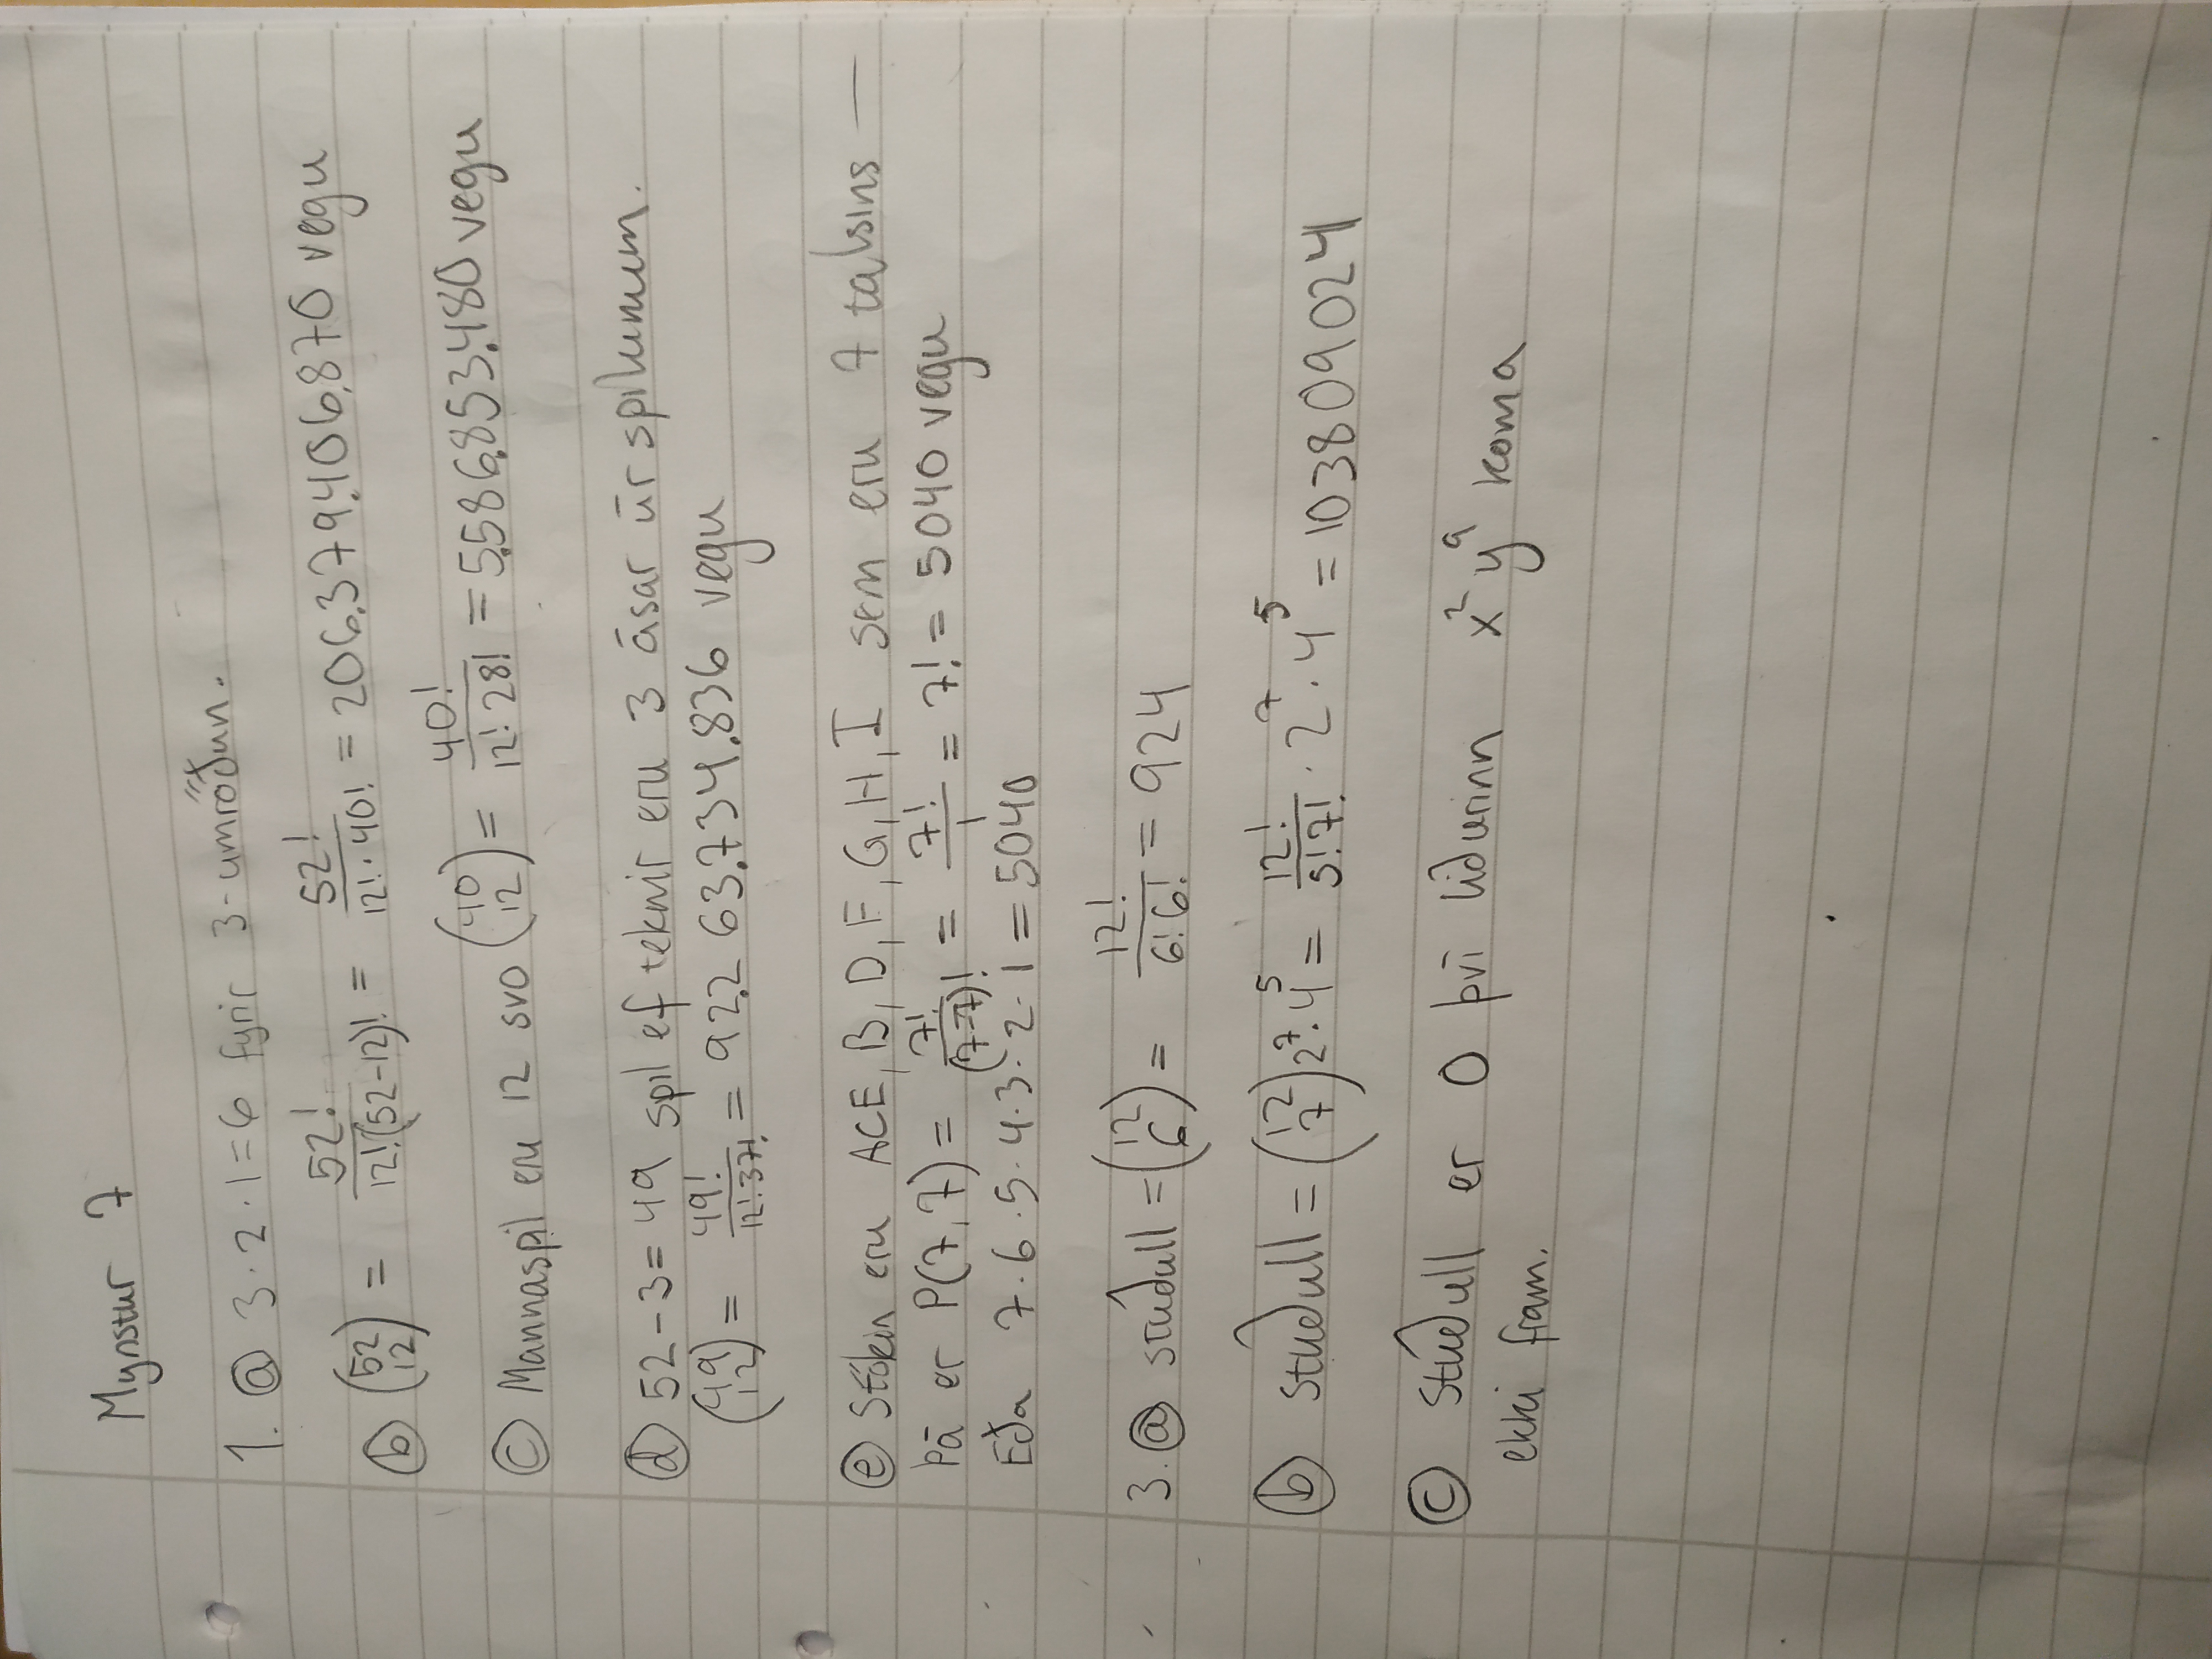 Mynstur 7
1. ⓐ 3·2·1=6 fyrir 3-umröðun.
ⓑ (52 12) = 52!/(12!(52-12)!) = 52!/(12!·40!) = 206.379.406.870 vegu
ⓒ Mannaspil eru 12 svo (40 12) = 40!/(12! 28!) = 5.586.853.480 vegu
ⓓ 52-3=49 spil ef teknir eru 3 ásar úr spilunum.
(49 12) = 49!/(12! 37!) = 92.263.734.836 vegu
ⓔ Stökin eru ACE, B, D, F, G, H, I sem eru 7 talsins —
Þá er P(7,7) = 7!/(7-7)! = 7!/1 = 7! = 5040 vegu
Eða 7·6·5·4·3·2·1 = 5040
3. ⓐ stuðull = (12 6) = 12!/(6! 6!) = 924
ⓑ stuðull = (12 7) 2⁷·4⁵ = 12!/(5! 7!) · 2⁷·4⁵ = 103809024
ⓒ stuðull er 0 því liðurinn x²y⁹ koma
ekki fram.